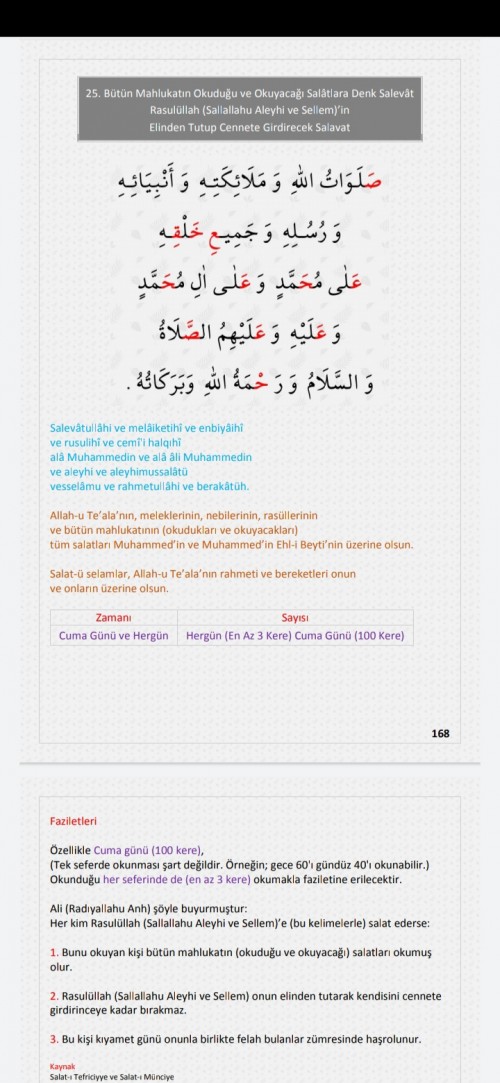 25. Bütün Mahlukatın Okuduğu ve Okuyacağı Salâtlara Denk Salevât
Rasulüllah (Sallallahu Aleyhi ve Sellem)'in
Elinden Tutup Cennete Girdirecek Salavat
صَلَوَاتُ اللهِ وَ مَلَائِكَتِهِ وَ أَنْبِيَائِهِ
وَ رُسُلِهِ وَ جَمِيعِ خَلْقِهِ
عَلٰى مُحَمَّدٍ وَ عَلٰى اٰلِ مُحَمَّدٍ
وَ عَلَيْهِ وَ عَلَيْهِمُ الصَّلَاةُ
وَ السَّلَامُ وَ رَحْمَةُ اللهِ وَبَرَكَاتُهُ .
Salevâtullâhi ve melâiketihî ve enbiyâihî
ve rusulihî ve cemî'i halqıhî
alâ Muhammedin ve alâ âli Muhammedin
ve aleyhi ve aleyhimussalâtü
vesselâmu ve rahmetullâhi ve berakâtüh.
Allah-u Te'ala'nın, meleklerinin, nebilerinin, rasüllerinin
ve bütün mahlukatının (okudukları ve okuyacakları)
tüm salatları Muhammed'in ve Muhammed'in Ehl-i Beyti'nin üzerine olsun.
Salat-ü selamlar, Allah-u Te'ala'nın rahmeti ve bereketleri onun
ve onların üzerine olsun.
Zamanı Sayısı
Cuma Günü ve Hergün Hergün (En Az 3 Kere) Cuma Günü (100 Kere)
168
Faziletleri
Özellikle Cuma günü (100 kere),
(Tek seferde okunması şart değildir. Örneğin; gece 60'ı gündüz 40'ı okunabilir.)
Okunduğu her seferinde de (en az 3 kere) okumakla faziletine erilecektir.
Ali (Radıyallahu Anh) şöyle buyurmuştur:
Her kim Rasulüllah (Sallallahu Aleyhi ve Sellem)'e (bu kelimelerle) salat ederse:
1. Bunu okuyan kişi bütün mahlukatın (okuduğu ve okuyacağı) salatları okumuş
olur.
2. Rasulüllah (Sallallahu Aleyhi ve Sellem) onun elinden tutarak kendisini cennete
girdirinceye kadar bırakmaz.
3. Bu kişi kıyamet günü onunla birlikte felah bulanlar zümresinde haşrolunur.
Kaynak
Salat-ı Tefriciyye ve Salat-ı Münciye